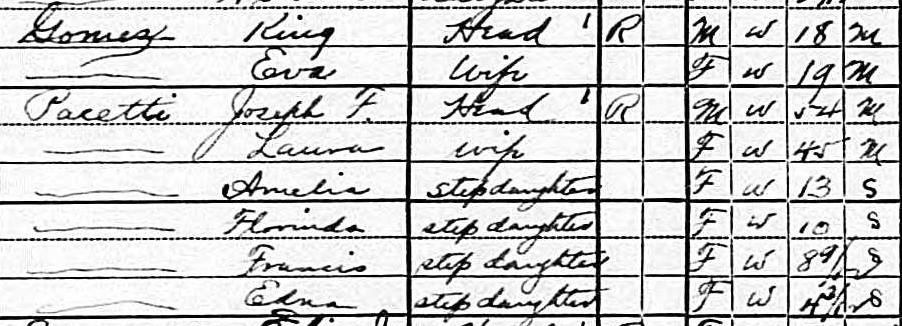 Gomez King Head 1 R M W 18 M
Eva Wife F W 19 M
Pacetti Joseph F. Head 1 R M W 54 M
Laura Wife F W 45 M
Amelia stepdaughter F W 13 S
Florinda step daughter F W 10 S
Francis step daughter F W 8 9/ S
Edna step daughter F W 4 3/ S